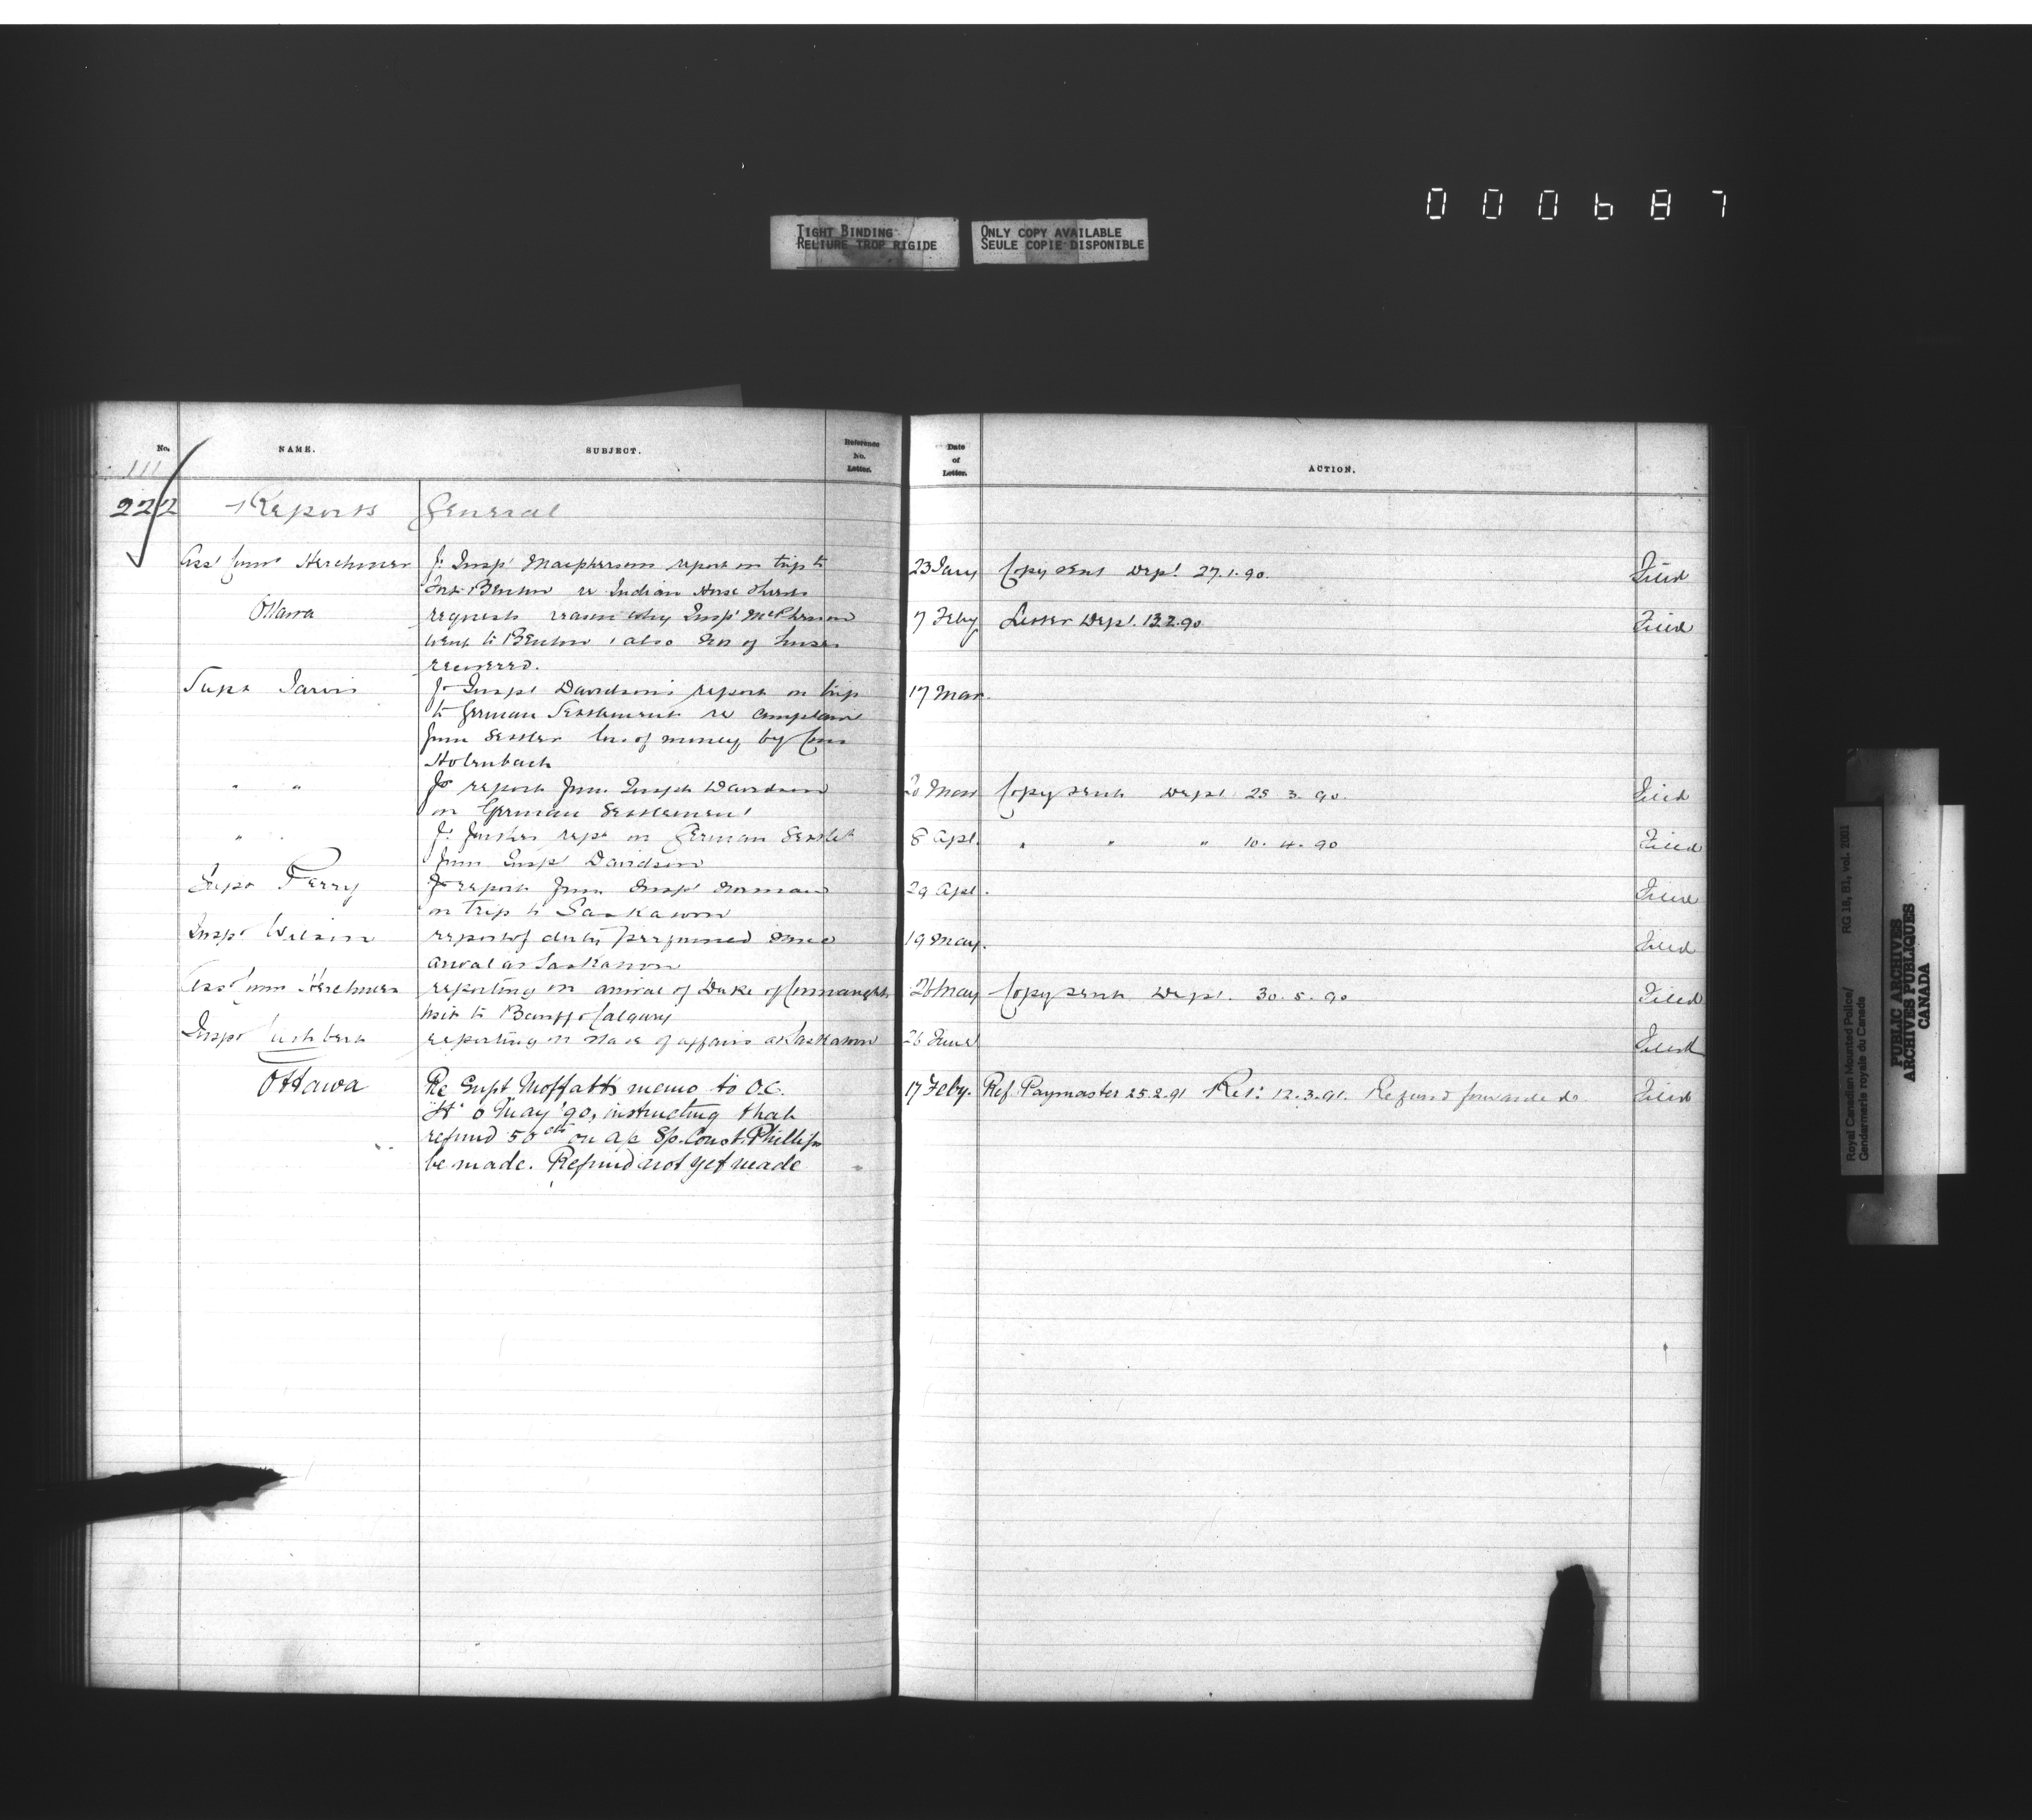 000687
TIGHT BINDING
RELIURE TROP RIGIDE
ONLY COPY AVAILABLE
SEULE COPIE DISPONIBLE
No. NAME. SUBJECT. Reference No. Letter. Date of Letter. ACTION.
111
222 Reports General
Asst Commr Herchmer fr Inspr Macphersons report on trip to 23 Jany Copy sent Dept. 27.1.90. Filed
Fort Benton re Indian Horse thieves
Ottawa requests reason why Inspr McPherson 7 Feby Letter Dept. 13.2.90 Filed
went to Benton, also Nos of horses
recovered.
Supt Jarvis fr Inspr Davidson's report on trip 17 Mar.
to German Settlement re complaint
from Settler of money by Cons
Holenbach
" " fr report from Inspr Davidson 20 Mar Copy sent Dept 25.3.90. Filed
on German Settlement
" " fr further rept on German Settlet 8 Apl. " " " 10.4.90 Filed
from Inspr Davidson
Supt Perry fr report from Inspr Norman 29 Apl. Filed
on trip to Saskatoon
Inspr Wilson report of duty performed since 19 May. Filed
arrival at Saskatoon
Asst Comm Herchmer reporting on arrival of Duke of Connaught 26 May Copy sent Dept. 30.5.90 Filed
visit to Banff & Calgary
Inspr Cuthbert reporting on state of affairs at Saskatoon 26 June Filed
Ottawa Re Supt Moffatt's memo to O.C. 17 Feby. Ref. Paymaster 25.2.91 Ret: 12.3.91. Refund forwarded. Filed
"H" 6 May '90, instructing that
refund 50 cts on a/c Sp. Const. Phillips
be made. Refund not yet made
Royal Canadian Mounted Police/ RG 18, B1, vol. 2001
Gendarmerie royale du Canada
PUBLIC ARCHIVES
ARCHIVES PUBLIQUES
CANADA